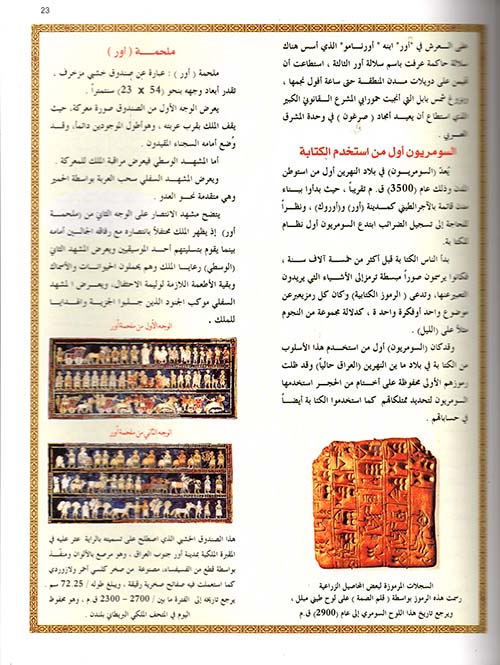 23
على العرش في "أور" ابنه " أورنـامو" الذي أسس هناك
سلالة حاكمة عرفت باسم سلالة أور الثالثة ، استطاعت أن
تهيمن على دويلات مدن المنطقة حتى ساعة أفول نجمها ،
وبزوغ شمس بابل التي أنجبت حمورابي المشرع القانوني الكبير
الذي استطاع أن يعيد أمجاد ( صرغون ) في وحدة المشرق
العربي .
السومريون أول من استخدم الكتابة
يُعدّ (السومريـــون) في بلاد النهرين أول من استوطن
المدن وذلك عام (3500) ق.م تقريباً ، حيث بدأوا ببناء
مدن قائمة بالآجر الطيني كمدينة (أور) و(أوروك) ، ونظراً
للحاجة إلى تسجيل الضرائب ابتدع السومريون أول نظام
للكتابة .
بدأ الناس الكتابة قبل أكثر من خمسة آلاف سنة ،
فكانوا يرسمون صوراً مبسطة ترمز إلى الأشياء التي يريدون
التعبير عنها، وتدعى ( الرموز الكتابية) وكان كل رمز يعبر عن
موضوع واحد أو فكرة واحدة ، كدلالة مجموعة من النجوم
مثلاً على (الليل) .
وقد كان (السومريون) أول من استخدم هذا الأسلوب
من الكتابة في بلاد ما بين النهرين (العراق حالياً) وقد ظلت
رموزهم الأولى محفوظة على أختام من الحجر استخدمها
السومريون لتحديد ممتلكاتهم كما استخدموا الكتابة أيضاً
في حساباتهم .
السجلات المرموزة لبعض المحاصيل الزراعية
رسمت هذه الرموز بواسطة ( قلم القصبة ) على لوح طيني مبلل ،
ويرجع تاريخ هذا اللوح السومري إلى عام (2900) ق.م
ملحمـة ( أور )
ملحمة ( أور ) : عبارة عن صندوق خشبي مزخرف ،
تقدر أبعاد وجهه بنحو (54 x 23) سنتمتراً .
يعرض الوجه الأول من الصندوق صورة معركة، حيث
يقف الملك بقرب عربته ، وهو أطول الموجودين دائماً، وقد
وُضع أمامه السجناء المقيدون .
أما المشهد الوسطي فيعرض مرافقة الملك للمعركة .
ويعرض المشهد السفلي سحب العربة بواسطة الحمير
وهي متقدمة نحو العدو .
يتضح مشهد الانتصار على الوجه الثاني من (ملحمة
أور) إذ يظهر الملك محتفلاً بانتصاره مع رفاقه الجالسين أمامه
بينما يقوم بتسليتهم أحد الموسيقيين ويعرض المشهد الثاني
(الوسطي) رعايا الملك وهم يحملون الحيوانات والأسماك
وبقية الأطعمة اللازمة لوليمة الاحتفال، ويعرض المشهد
السفلي موكب الجنود الذين جلبوا الجزية والهدايا
للملك .
الوجه الأول من ملحمة أور
الوجه الثاني من ملحمة أور
هذا الصندوق الخشبي الذي اصطلح على تسميته بالراية عثر عليه في
المقبرة الملكية بمدينة أور جنوب العراق ، وهو مرصع بالألوان ومنفّذ
بواسطة قطع من الفسيفساء، مصنوعة من صخر كلسي أحمر ولازوردي
كما استعملت فيه صفائح صخرية رقيقة ، ويبلغ طوله / 72.25 سم .
يرجع تاريخه إلى الفترة ما بين / 2700 – 2300 ق.م ، وهو محفوظ
اليوم في المتحف الملكي البريطاني بلندن .